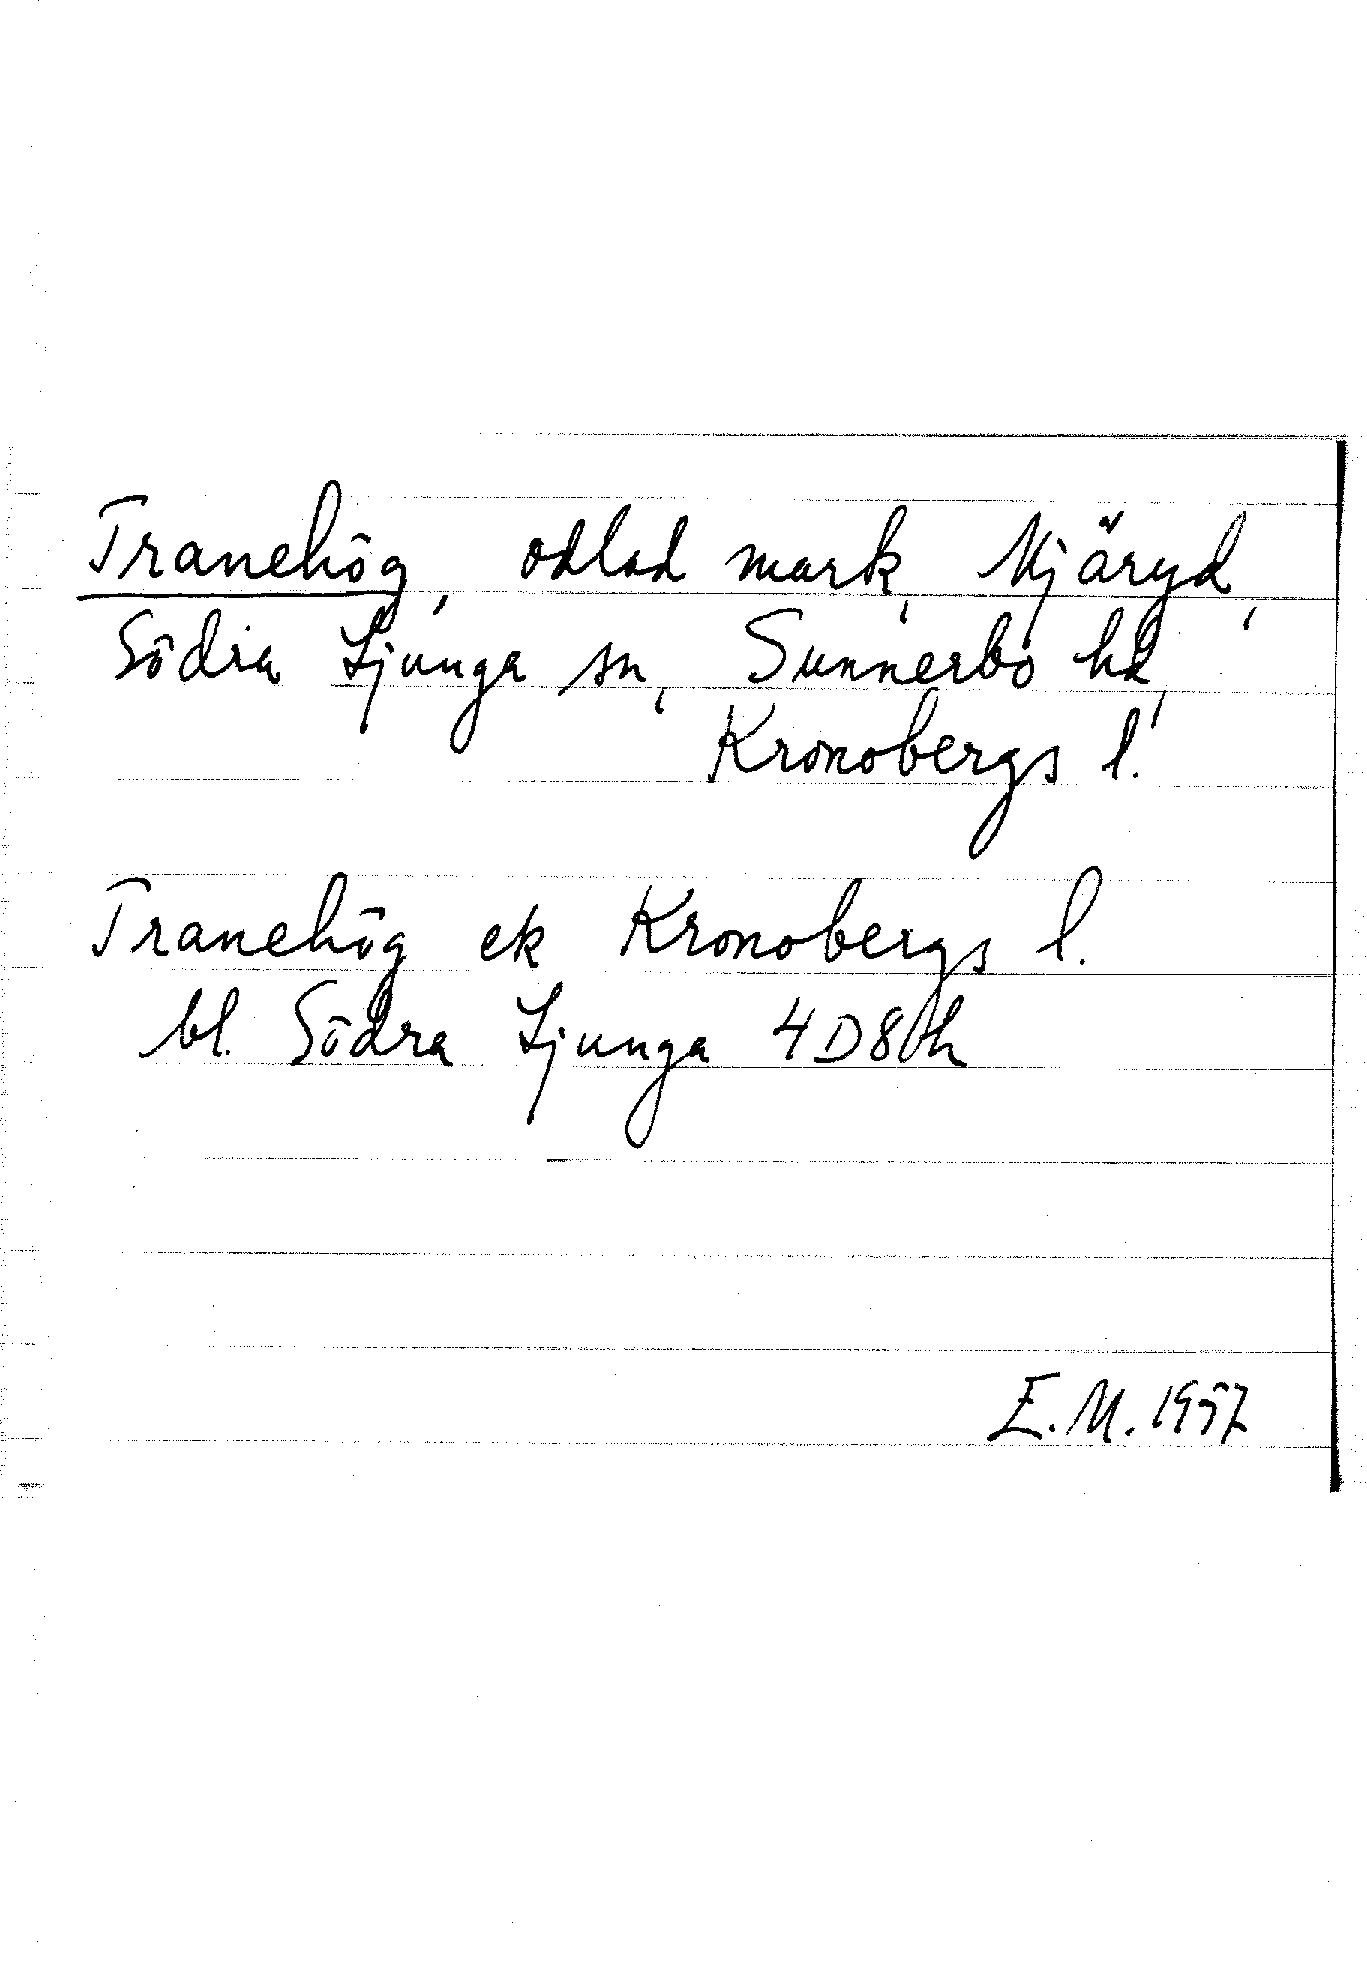 Tranehög, odlad mark, Mjäryd,
Södra Ljunga sn, Sunnerbo hd,
Kronobergs l.
Tranehög ek Kronobergs l.
bl. Södra Ljunga 4D8h
E.M. 1957